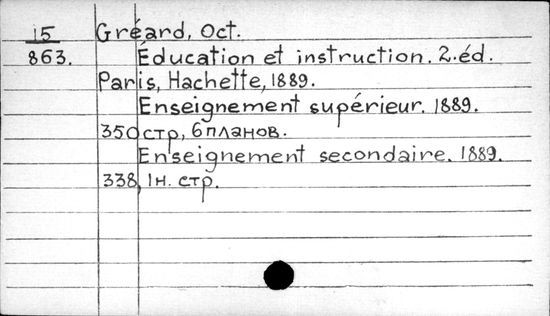 15 Gréard, Oct.
863. Éducation et instruction. 2.éd.
Paris, Hachette, 1889.
Enseignement supérieur. 1889.
350 стр, 6 планов.
Enseignement secondaire. 1889.
338, 1 н. стр.